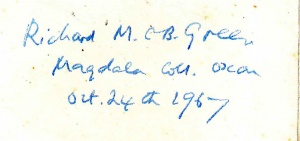 Richard M. C B. Green
Magdala Coll. Oxon
Oct. 24th 1967